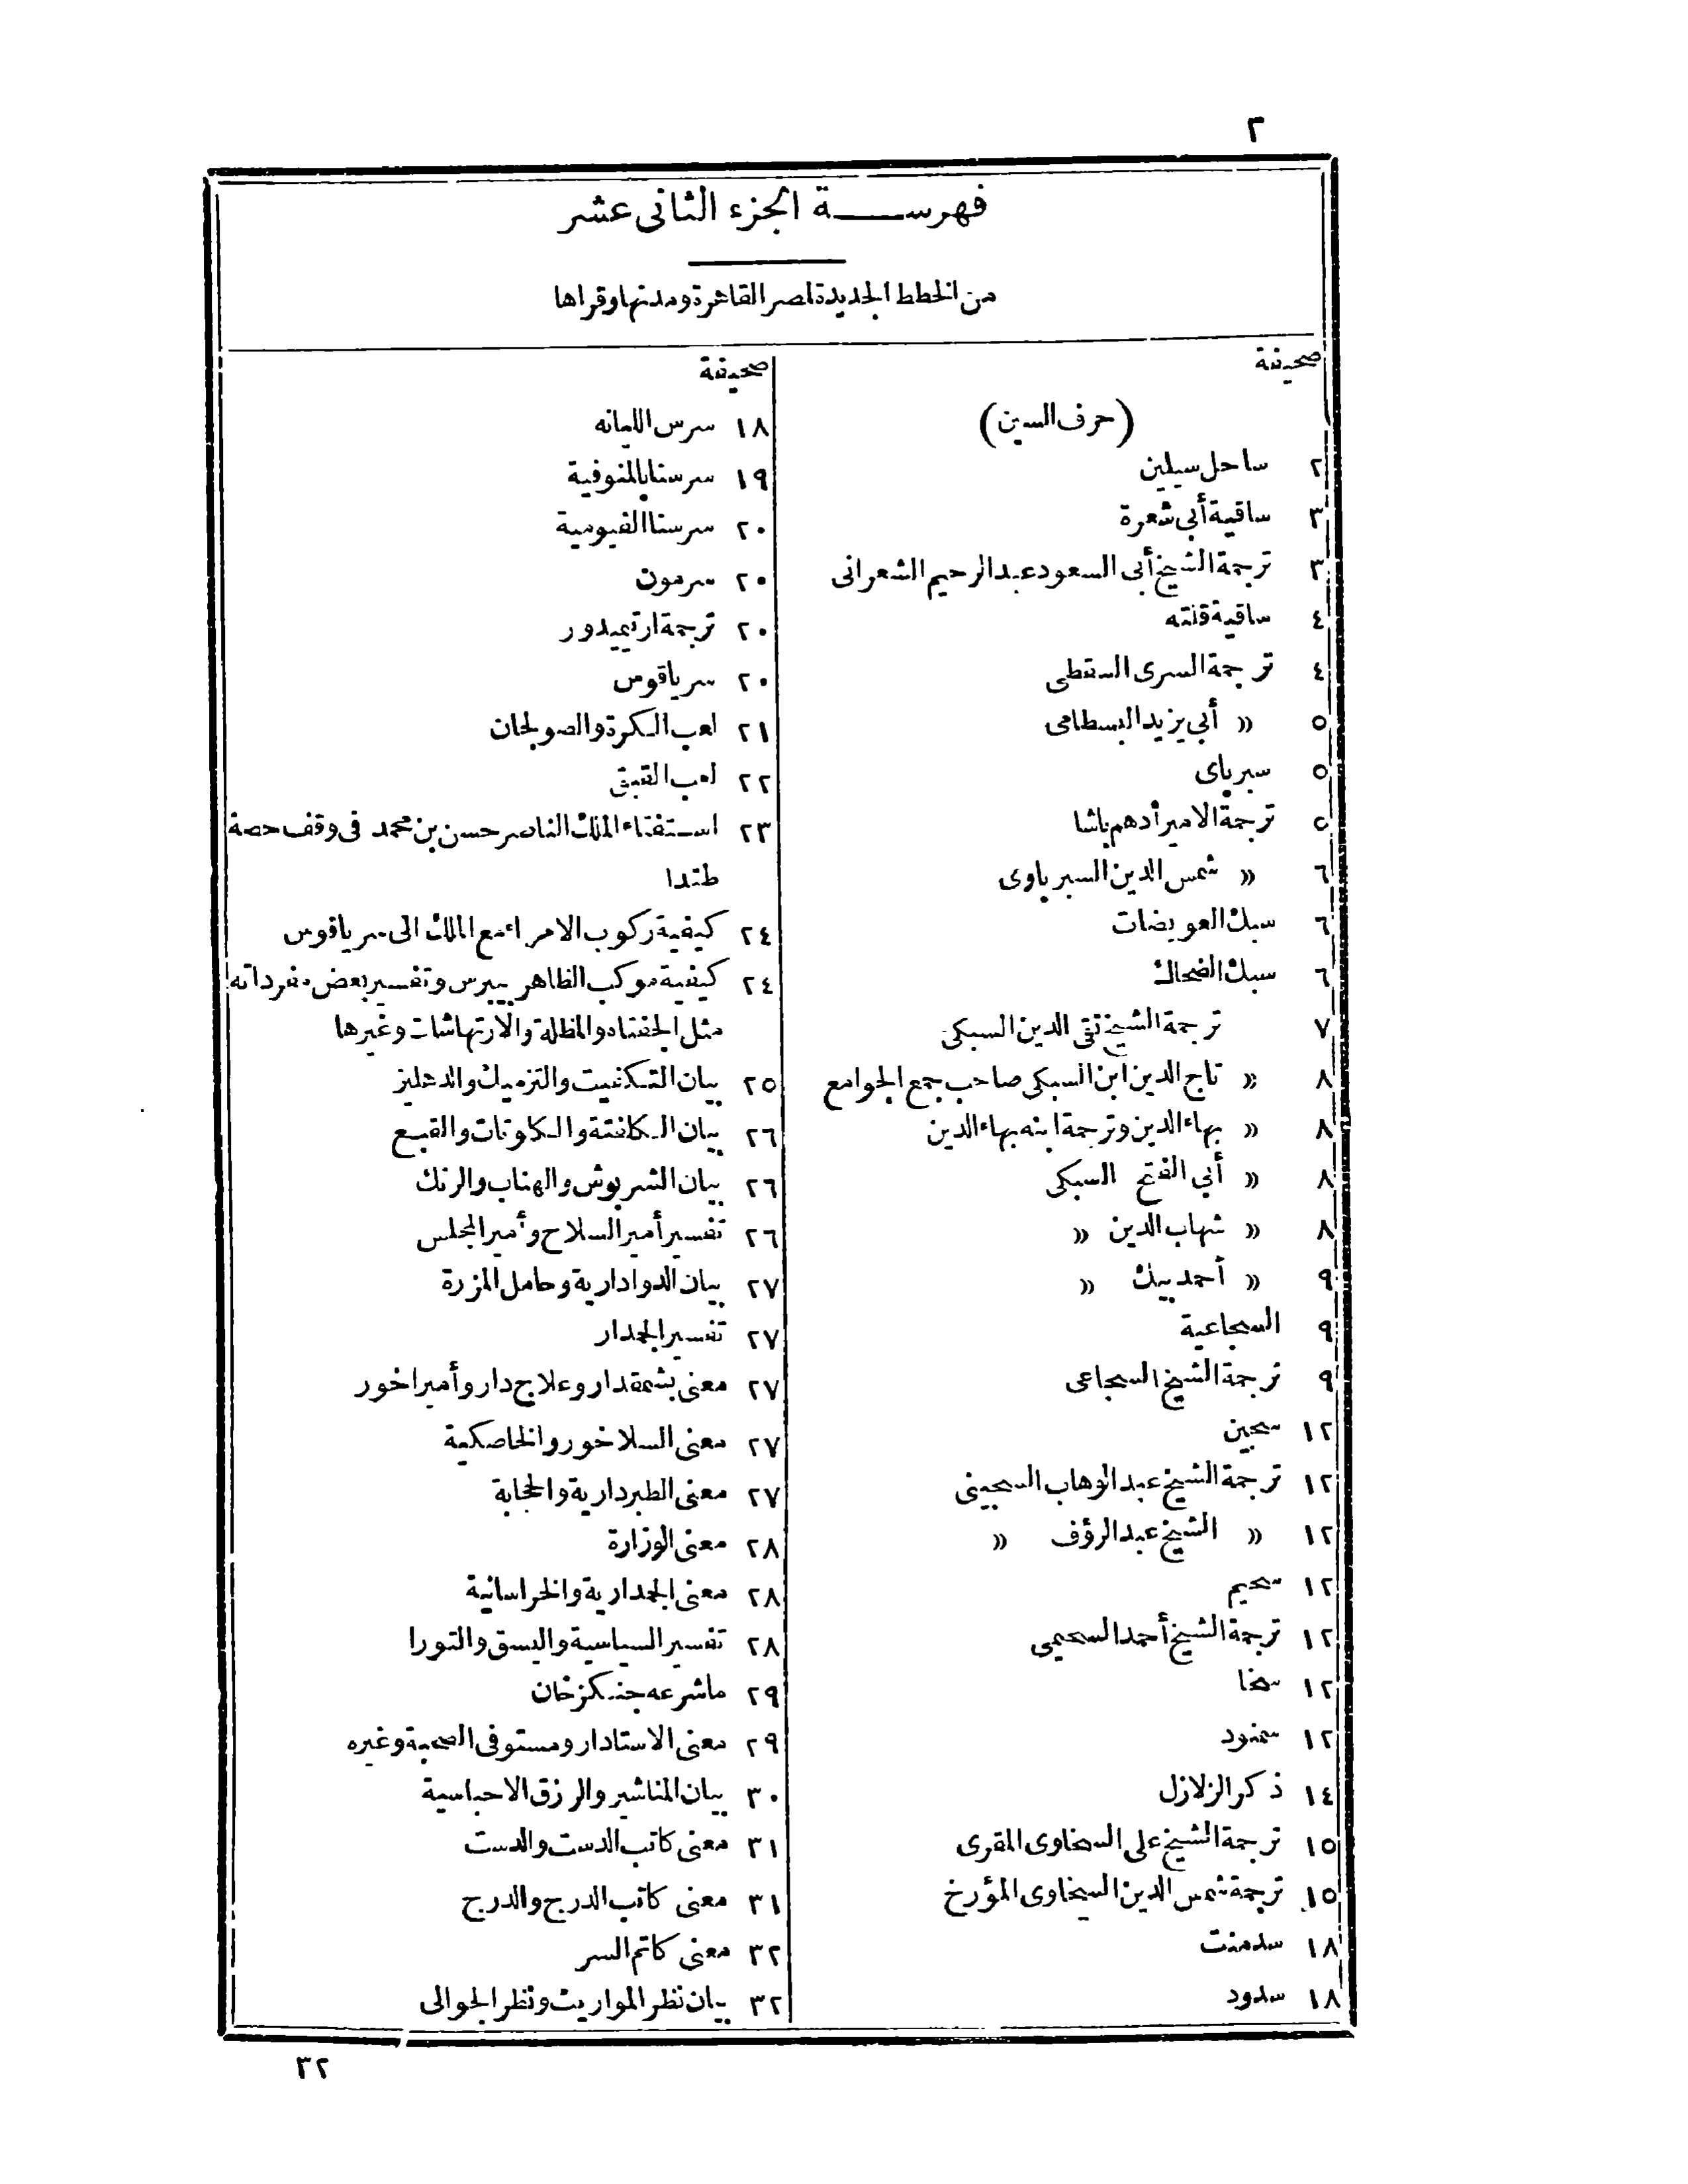 ٢
فهرســـة الجزء الثانى عشر
من الخطط الجديدة لمصر القاهرة ومدنها وقراها
صحيفة
(حرف السين)
٢ ساحل سيلين
٣ ساقية أبى شعرة
٣ ترجمة الشيخ أبى السعود عبد الرحيم الشعرانى
٤ ساقية قلته
٤ ترجمة السرى السقطى
٥ » أبى يزيد البسطامى
٥ سبرباى
٥ ترجمة الامير أدهم باشا
٦ » شمس الدين السبرباوى
٦ سبك العويضات
٦ سبك الضحاك
٧ ترجمة الشيخ تقى الدين السبكى
٨ » تاج الدين ابن السبكى صاحب جمع الجوامع
٨ » بهاء الدين وترجمة ابنه بهاء الدين
٨ » أبى الفتح السبكى
٨ » شهاب الدين »
٩ » أحمد بيك »
٩ السجاعية
٩ ترجمة الشيخ السجاعى
١٢ سجين
١٢ ترجمة الشيخ عبد الوهاب السجينى
١٢ » الشيخ عبد الرؤف »
١٢ سحيم
١٢ ترجمة الشيخ أحمد السحيمى
١٢ سخا
١٢ سمنود
١٤ ذكر الزلازل
١٥ ترجمة الشيخ على السخاوى المقرى
١٥ ترجمة شمس الدين السخاوى المؤرخ
١٨ سدمنت
١٨ سدود
صحيفة
١٨ سرس الليانه
١٩ سرسنا بالمنوفية
٢٠ سرسنا الفيومية
٢٠ سرمون
٢٠ ترجمة ارتيميدور
٢٠ سرياقوس
٢١ لعب الكرة والصولجان
٢٢ لعب القبق
٢٣ استفتاء الملك الناصر حسن بن محمد فى وقف حصة
طندا
٢٤ كيفية ركوب الامراء مع الملك الى سرياقوس
٢٤ كيفية موكب الظاهر بيبرس وتفسير بعض مفرداته
مثل الجفتاه والمظلة والارتهاشات وغيرها
٢٥ بيان التكفيت والتزميك والدهليز
٢٦ بيان الكلفتة والكلوتات والقبع
٢٦ بيان الشربوش والهناب والرنك
٢٦ تفسير أمير السلاح وأمير المجلس
٢٧ بيان الدوادارية وحامل المزرة
٢٧ تفسير الجمدار
٢٧ معنى بشمقدار وعلاج دار وأمير اخور
٢٧ معنى السلاخور والخاصكية
٢٧ معنى الطبردارية والحجابة
٢٨ معنى الوزارة
٢٨ معنى الجمدارية والخراسانية
٢٨ تفسير السياسية واليسق والتورا
٢٩ ما شرعه جنكزخان
٢٩ معنى الاستادار ومستوفى الصحبة وغيره
٣٠ بيان المناشير والرزق الاحباسية
٣١ معنى كاتب الدست والدست
٣١ معنى كاتب الدرج والدرج
٣٢ معنى كاتم السر
٣٢ بيان نظر المواريث ونظر الجوالى
٣٢